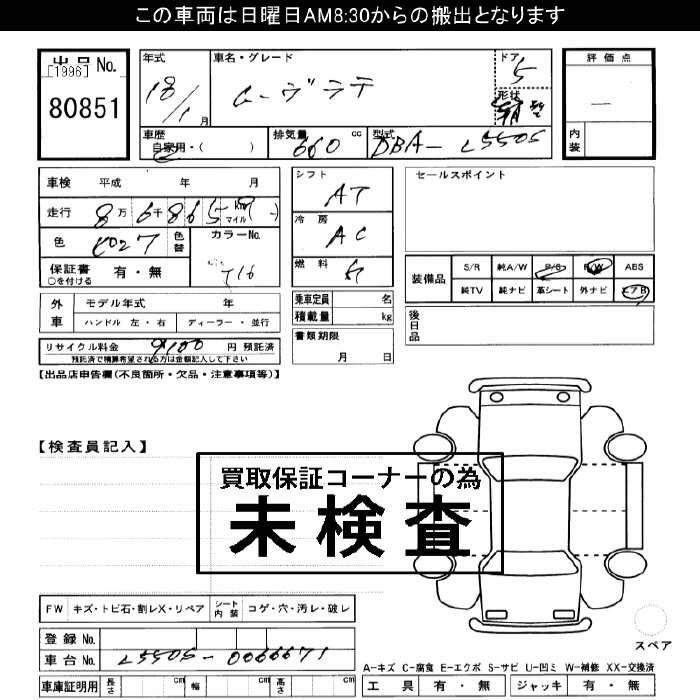 この車両は日曜日AM8:30からの搬出となります
出品No.
[1996]
80851
年式
18/1月
車名・グレード
ムーヴラテ
ドア
5
形状
評価点
—
車歴
自家用・( )
排気量
660 cc
型式
DBA-L550S
内装
車検 平成 年 月
走行 8万6千865 km マイル
色
色替
カラーNo.
T16
保証書
○を付ける
有・無
シフト
AT
冷房
AC
燃料
ガ
セールスポイント
装備品
S/R 純A/W P/S P/W ABS
純TV 純ナビ 革シート 外ナビ エアB
外車
モデル年式 年
ハンドル 左・右 ディーラー・並行
乗車定員 名
積載量 kg
後日品
リサイクル料金 9100 円 預託済
預託済で精算希望される方は金額記入して下さい
書類期限
月 日
【出品店申告欄(不良箇所・欠品・注意事項等)】
【検査員記入】
買取保証コーナーの為
未検査
FW キズ・トビ石・割レX・リペア シート内装 コゲ・穴・汚レ・破レ
登録No.
車台No. L550S-0066671
スペア
A-キズ C-腐食 E-エクボ S-サビ U-凹ミ W-補修 XX-交換済
車庫証明用 長さ cm 幅 cm 高さ cm
工具 有・無 ジャッキ 有・無